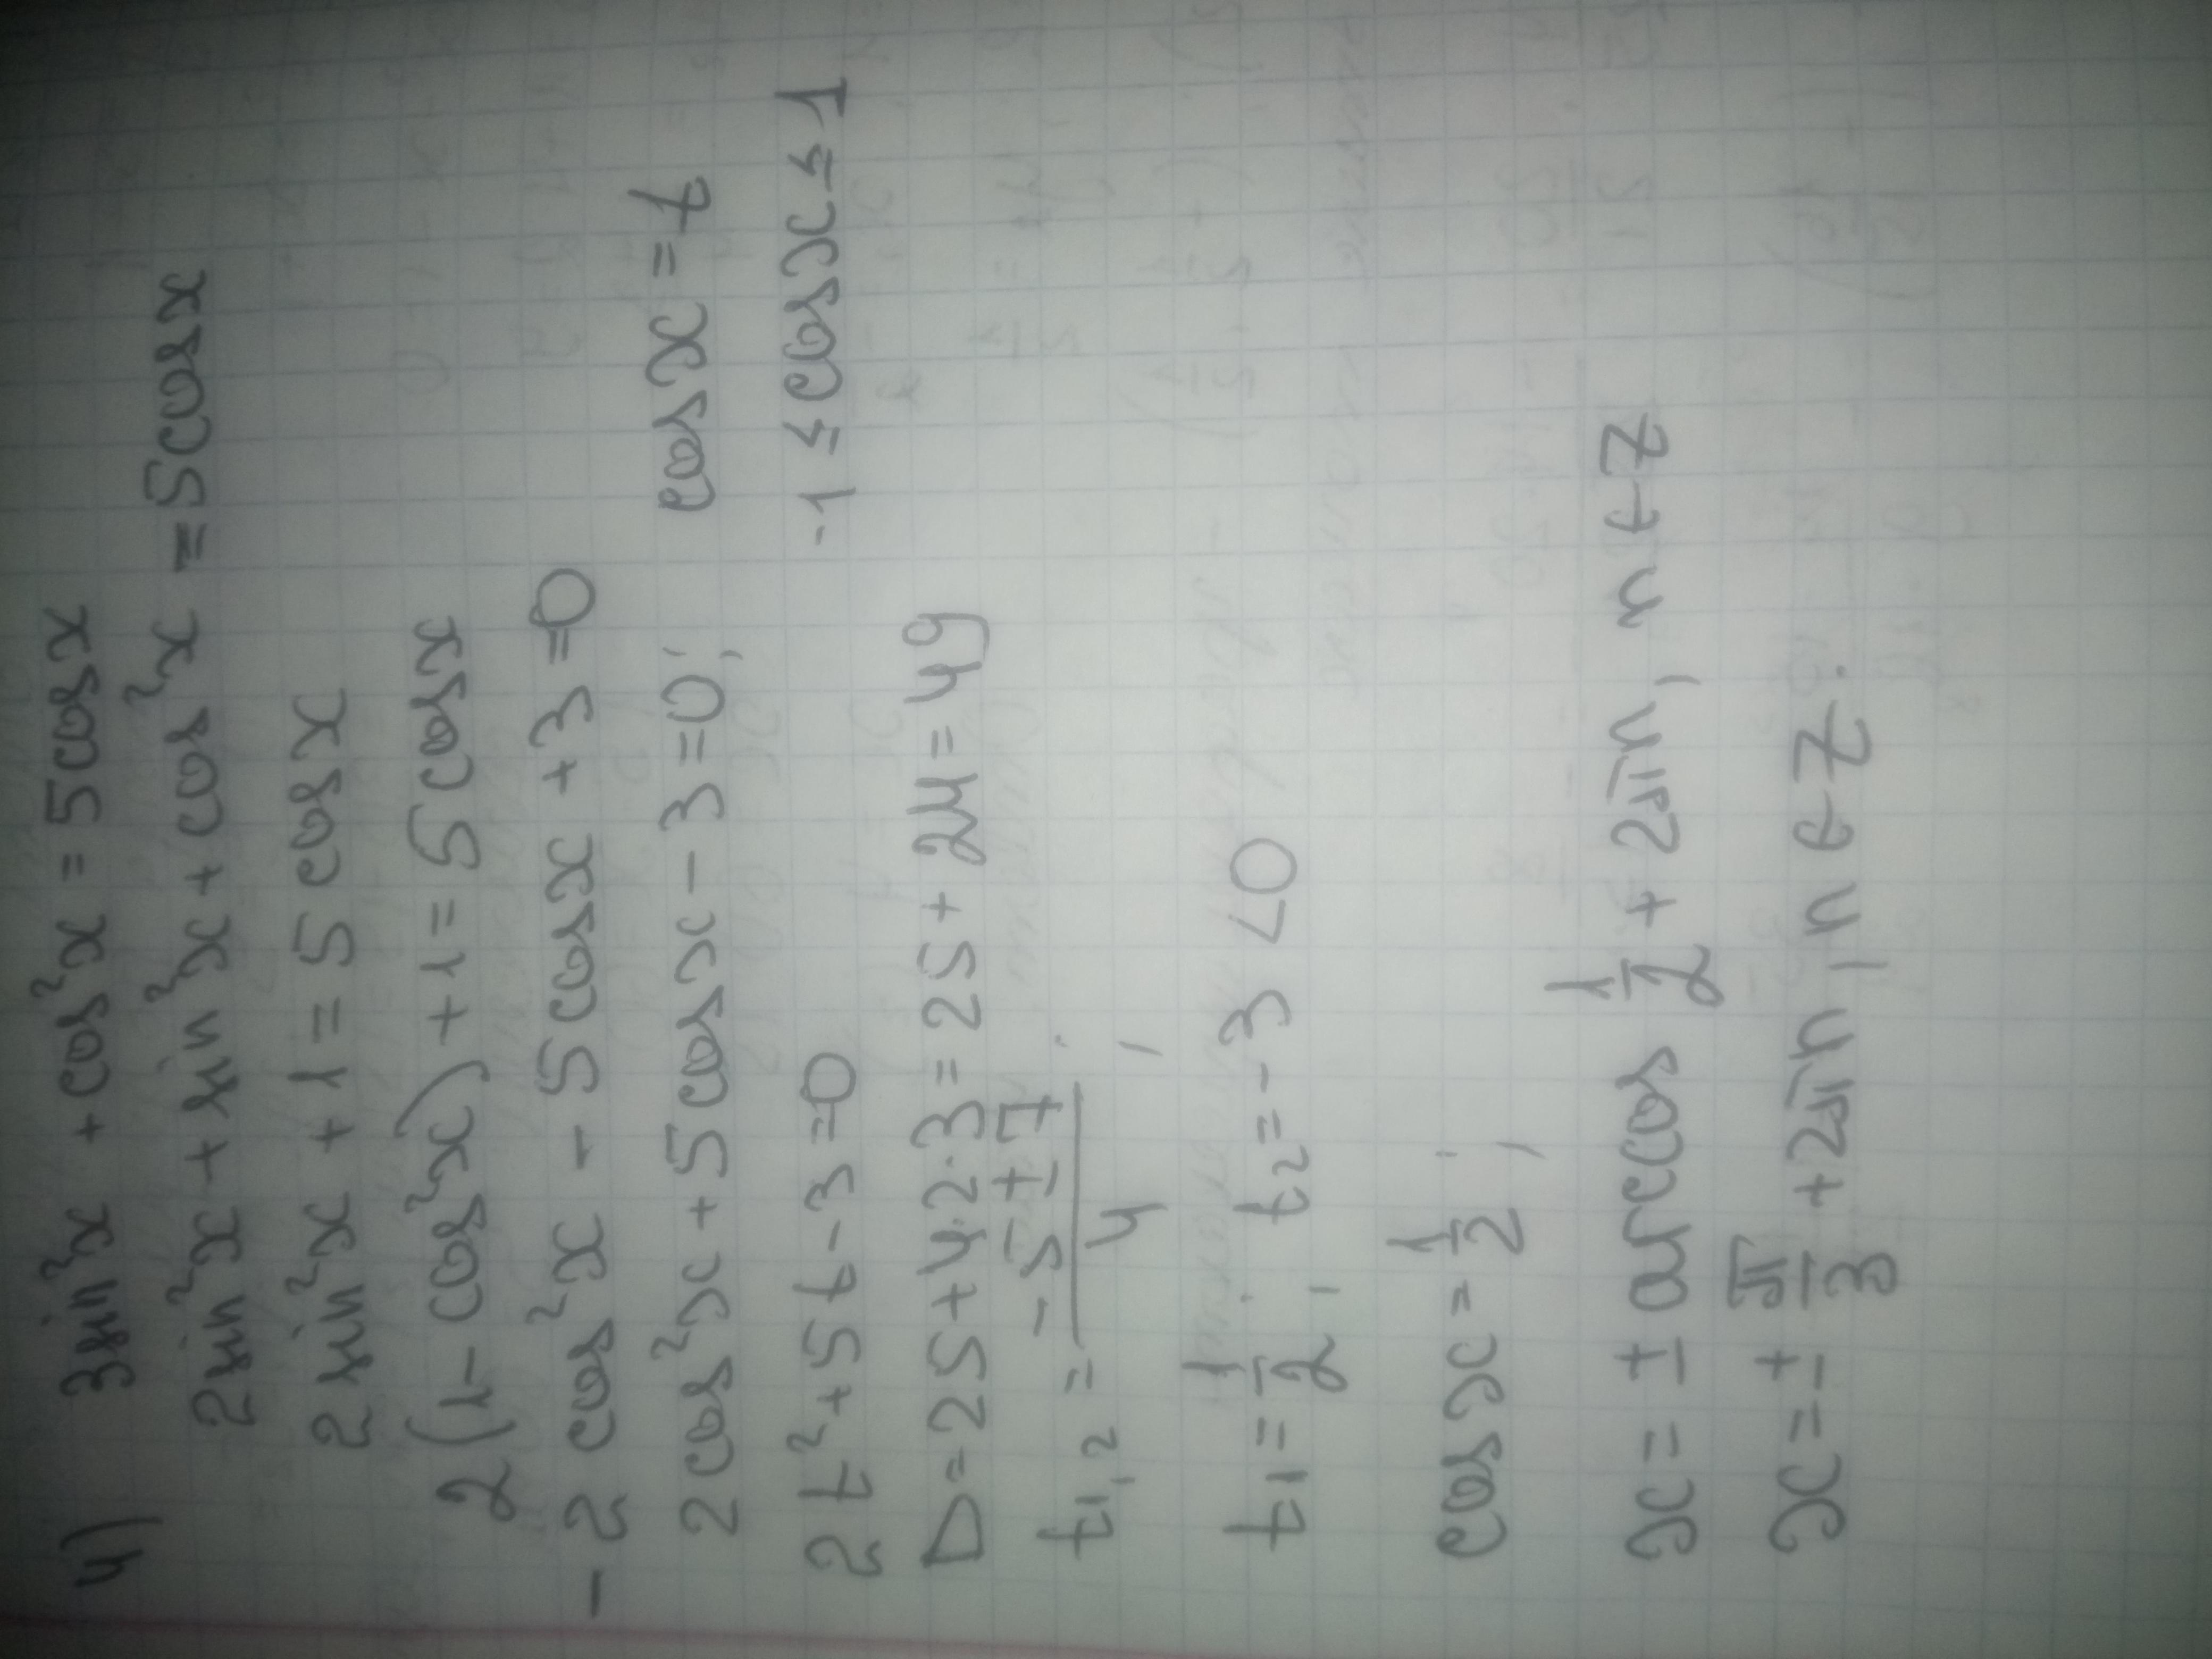 4) 3sin²x + cos²x = 5cosx
2sin²x + sin²x + cos²x = 5cosx
2sin²x + 1 = 5cosx
2(1 - cos²x) + 1 = 5cosx
-2cos²x - 5cosx + 3 = 0
2cos²x + 5cosx - 3 = 0; cosx = t
2t² + 5t - 3 = 0 -1 ≤ cosx ≤ 1
D = 25 + 4·2·3 = 25 + 24 = 49
t1,2 = (-5 ± 7)/4;
t1 = 1/2; t2 = -3 < 0
cosx = 1/2;
x = ± arccos 1/2 + 2πn, n ∈ Z
x = ± π/3 + 2πn, n ∈ Z.